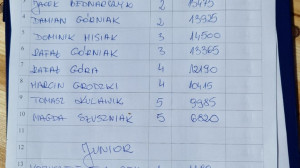 JACEK BEDNARCZYK 2 15475
4 DAMIAN GÓRNIAK 2 13925
5 DOMINIK MISIAK 3 14500
6 RAFAŁ GÓRNIAK 3 13365
7 RAFAŁ GÓRA 4 12190
8 MARCIN GRODZKI 4 10415
9 TOMASZ OKULAWIK 5 9985
10 MAGDA 5 6820
11
12 JUNIOR
13